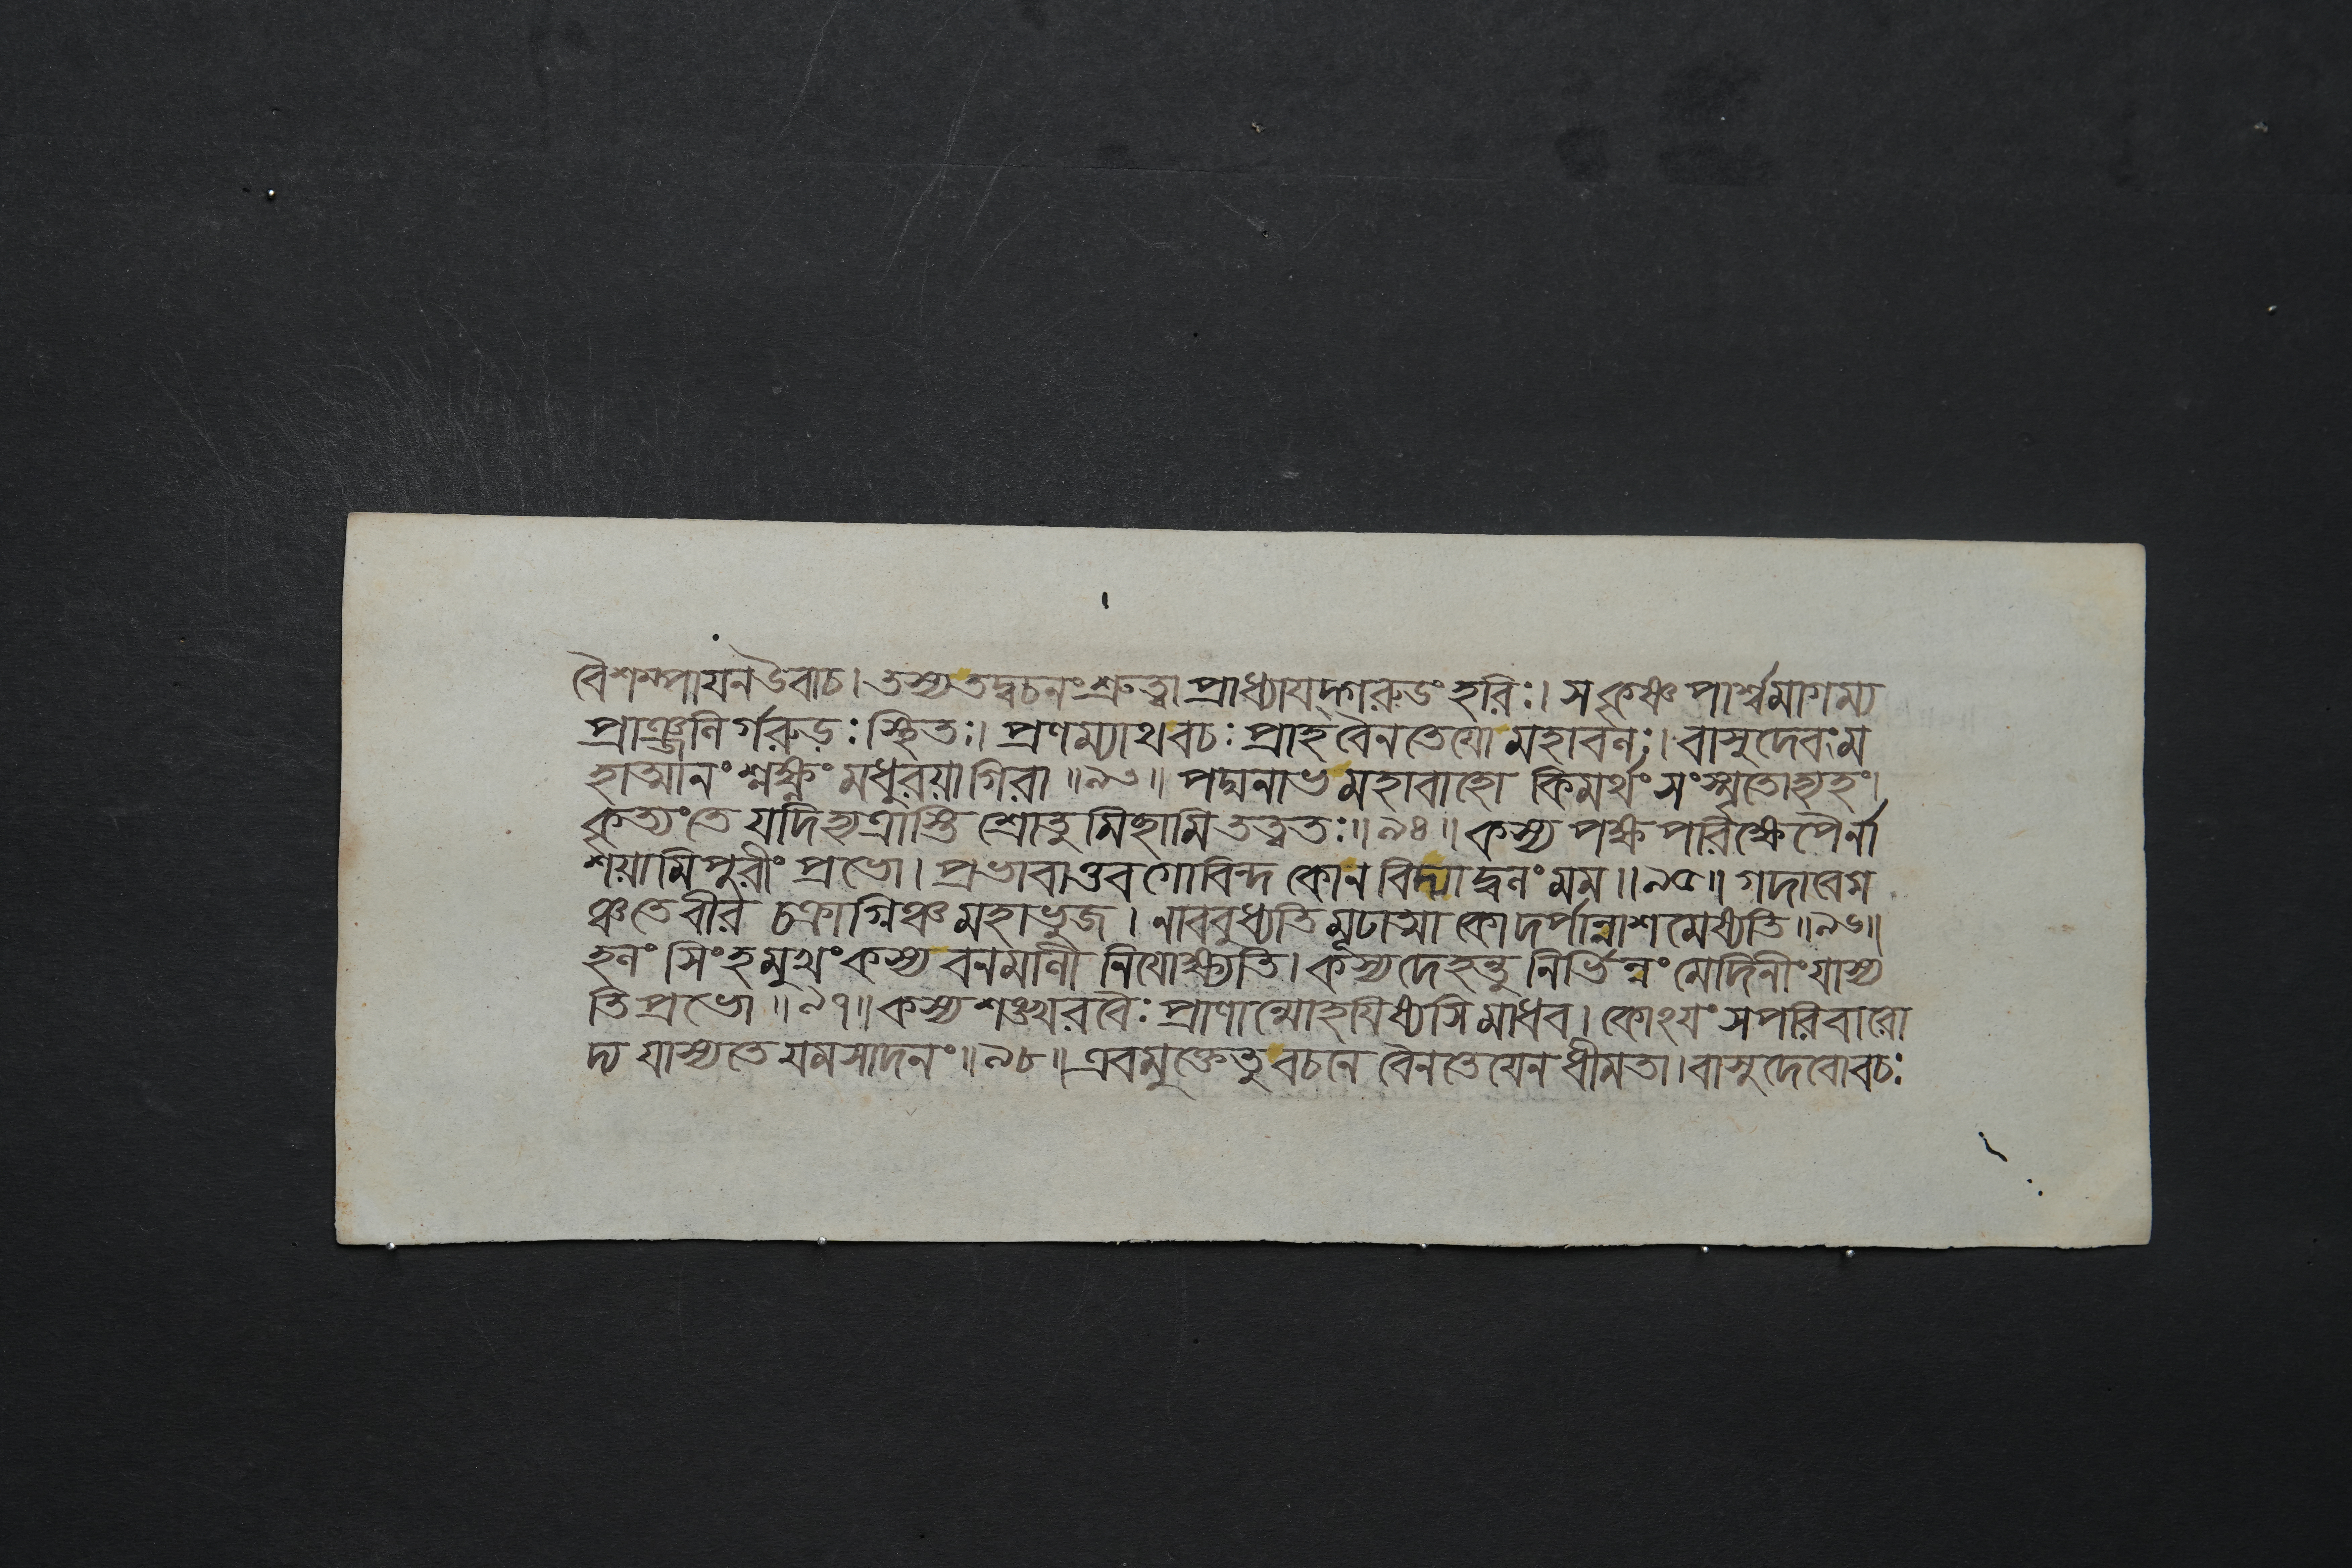 বৈশম্পায়ন উবাচ। তস্য তদ্বচনং শ্রুত্বা প্রাধ্যায়দ্গরুডং হরিঃ। স কৃষ্ণ পার্শ্বমাগম্য
প্রাঞ্জলির্গরুড়ঃ স্থিতঃ। প্রণম্যাথ বচঃ প্রাহ বৈনতেয়ো মহাবলঃ। বাসুদেবং ম
হাত্মানং শ্লক্ষ্ণং মধুরয়া গিরা॥৯৩॥ পদ্মনাভ মহাবাহো কিমর্থং সংস্মৃতোহ্যহং।
কৃত্যং তে যদিহ্যত্রাস্তি শ্রোতুমিছামি তত্বতঃ॥৯৪॥ কস্য পক্ষপরিক্ষেপৈর্না
শয়ামি পুরীং প্রভো। প্রভাবাত্তব গোবিন্দ কোন বিদ্যাদ্বলং মম॥৯৫॥ গদাবেগ
ঞ্চ তে বীর চক্রাগ্নিঞ্চ মহাভুজ। নাববুধ্যতি মূঢাত্মা কো দর্পান্নাশমেষ্যতি॥৯৬॥
হলং সিংহমুখং কস্য বনমালী নিয়োক্ষ্যতি। কস্য দেহস্তু নির্ভিন্নং মেদিনীং যাস্য
তি প্রভো॥৯৭॥ কস্য শঙ্খরবৈঃ প্রাণান্মোহয়িষ্যসি মাধব। কোঽয়ং সপরিবারো
দ্য যাস্যতে যমসাদনং॥৯৮॥ এবমুক্তে তু বচনে বৈনতেয়েন ধীমতা। বাসুদেবো বচঃ